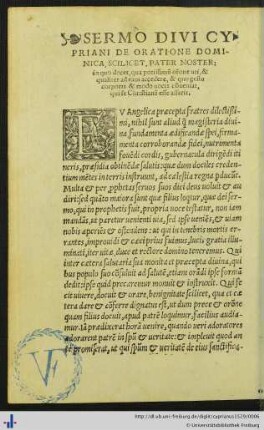 SERMO DIVI CY
PRIANI DE ORATIONE DOMI-
NICA, SCILICET, PATER NOSTER;
in quo docet, qua potissimū oratione uti, &
qualiter ad eam accedere, & quo gestu
corporis & modo uocis
quosq́; Christianos esse
EVAngelica præcepta fratres dilectissi-
mi, nihil sunt aliud q̄ magisteria diui-
na fundamenta ædificandæ spei, firma-
menta corroborandæ fidei, nutrimenta
fouēdi cordis, gubernacula dirigēdi iti-
neris, præsidia obtinēdæ salutis: quæ dum dociles credēti-
um mētes in terris instruunt, ad cælestia regna pducūt.
Multa & per pphetas seruos suos dici deus uoluit & au
diri: sed quāto maiora sunt quæ filius loquit, quæ dei ser-
mo, qui in prophetis fuit, propria uoce testatur, non iam
mandās, ut paretur uenienti uia, sed ipse ueniēs, & uiam
nobis aperiēs & ostendens: ut qui in tenebris mortis er-
rantes, improuidi & cæci prius fuimus, lucis gratia illu-
minati, iter uitæ, duce et rectore domino teneremus. Qui
inter cætera salutaria sua monita et præcepta diuina, qui
bus populo suo cōsuluit ad salutē, etiam orādi ipse formā
dedit: ipse quid precaremur monuit & instruxit. Qui fe
cit uiuere, docuit & orare, benignitate scilicet, qua et cæ
tera dare & cōferre dignatus est, ut dum prece & oratiōe
quam filius docuit, apud patrē loquimur, facilius audia-
mur. Iā prædixerat horā uenire, quando ueri adoratores
adorarent patrē in spū & ueritate: & impleuit quod an
te promiserat, ut qui spūm & ueritatē de eius sanctifica-
VF
http://dl.ub.uni-freiburg.de/diglit/cyprianus1520/0006
© Universitätsbibliothek Freiburg